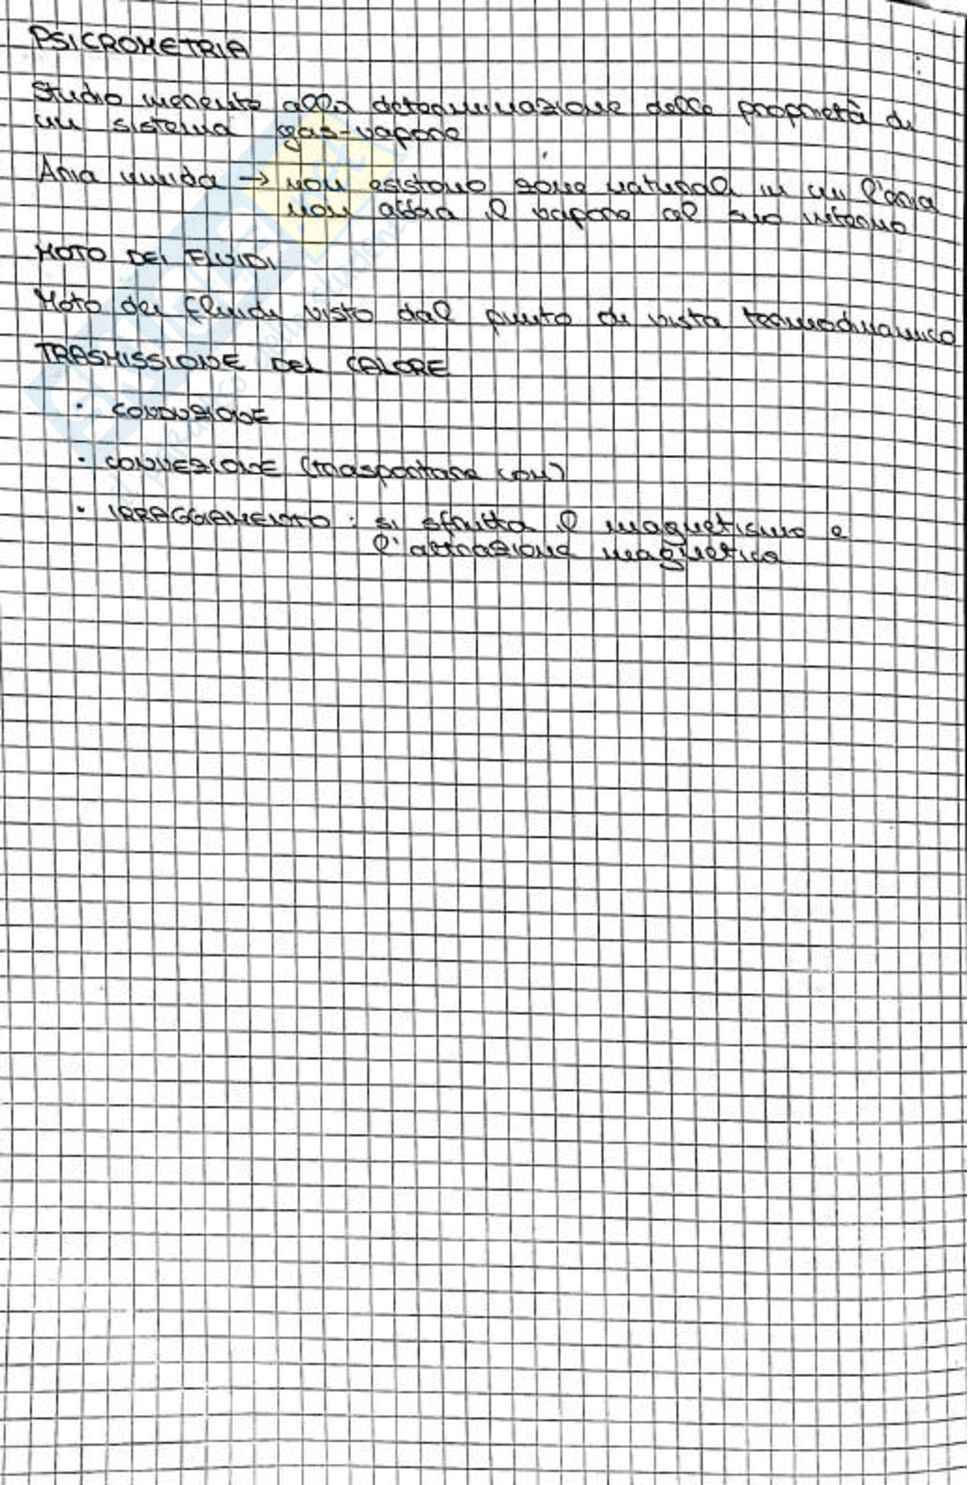 PSICROMETRIA
Studio inerente alla determinazione delle proprietà di
un sistema gas-vapore
Aria umida → non esistono zone naturali in cui l'aria
non abbia il vapore al suo interno
MOTO DEI FLUIDI
Moto dei fluidi visto dal punto di vista termodinamico
TRASMISSIONE DEL CALORE
· CONDUZIONE
· CONVEZIONE (trasportare con)
· IRRAGGIAMENTO : si sfrutta il magnetismo e
l'attrazione magnetica